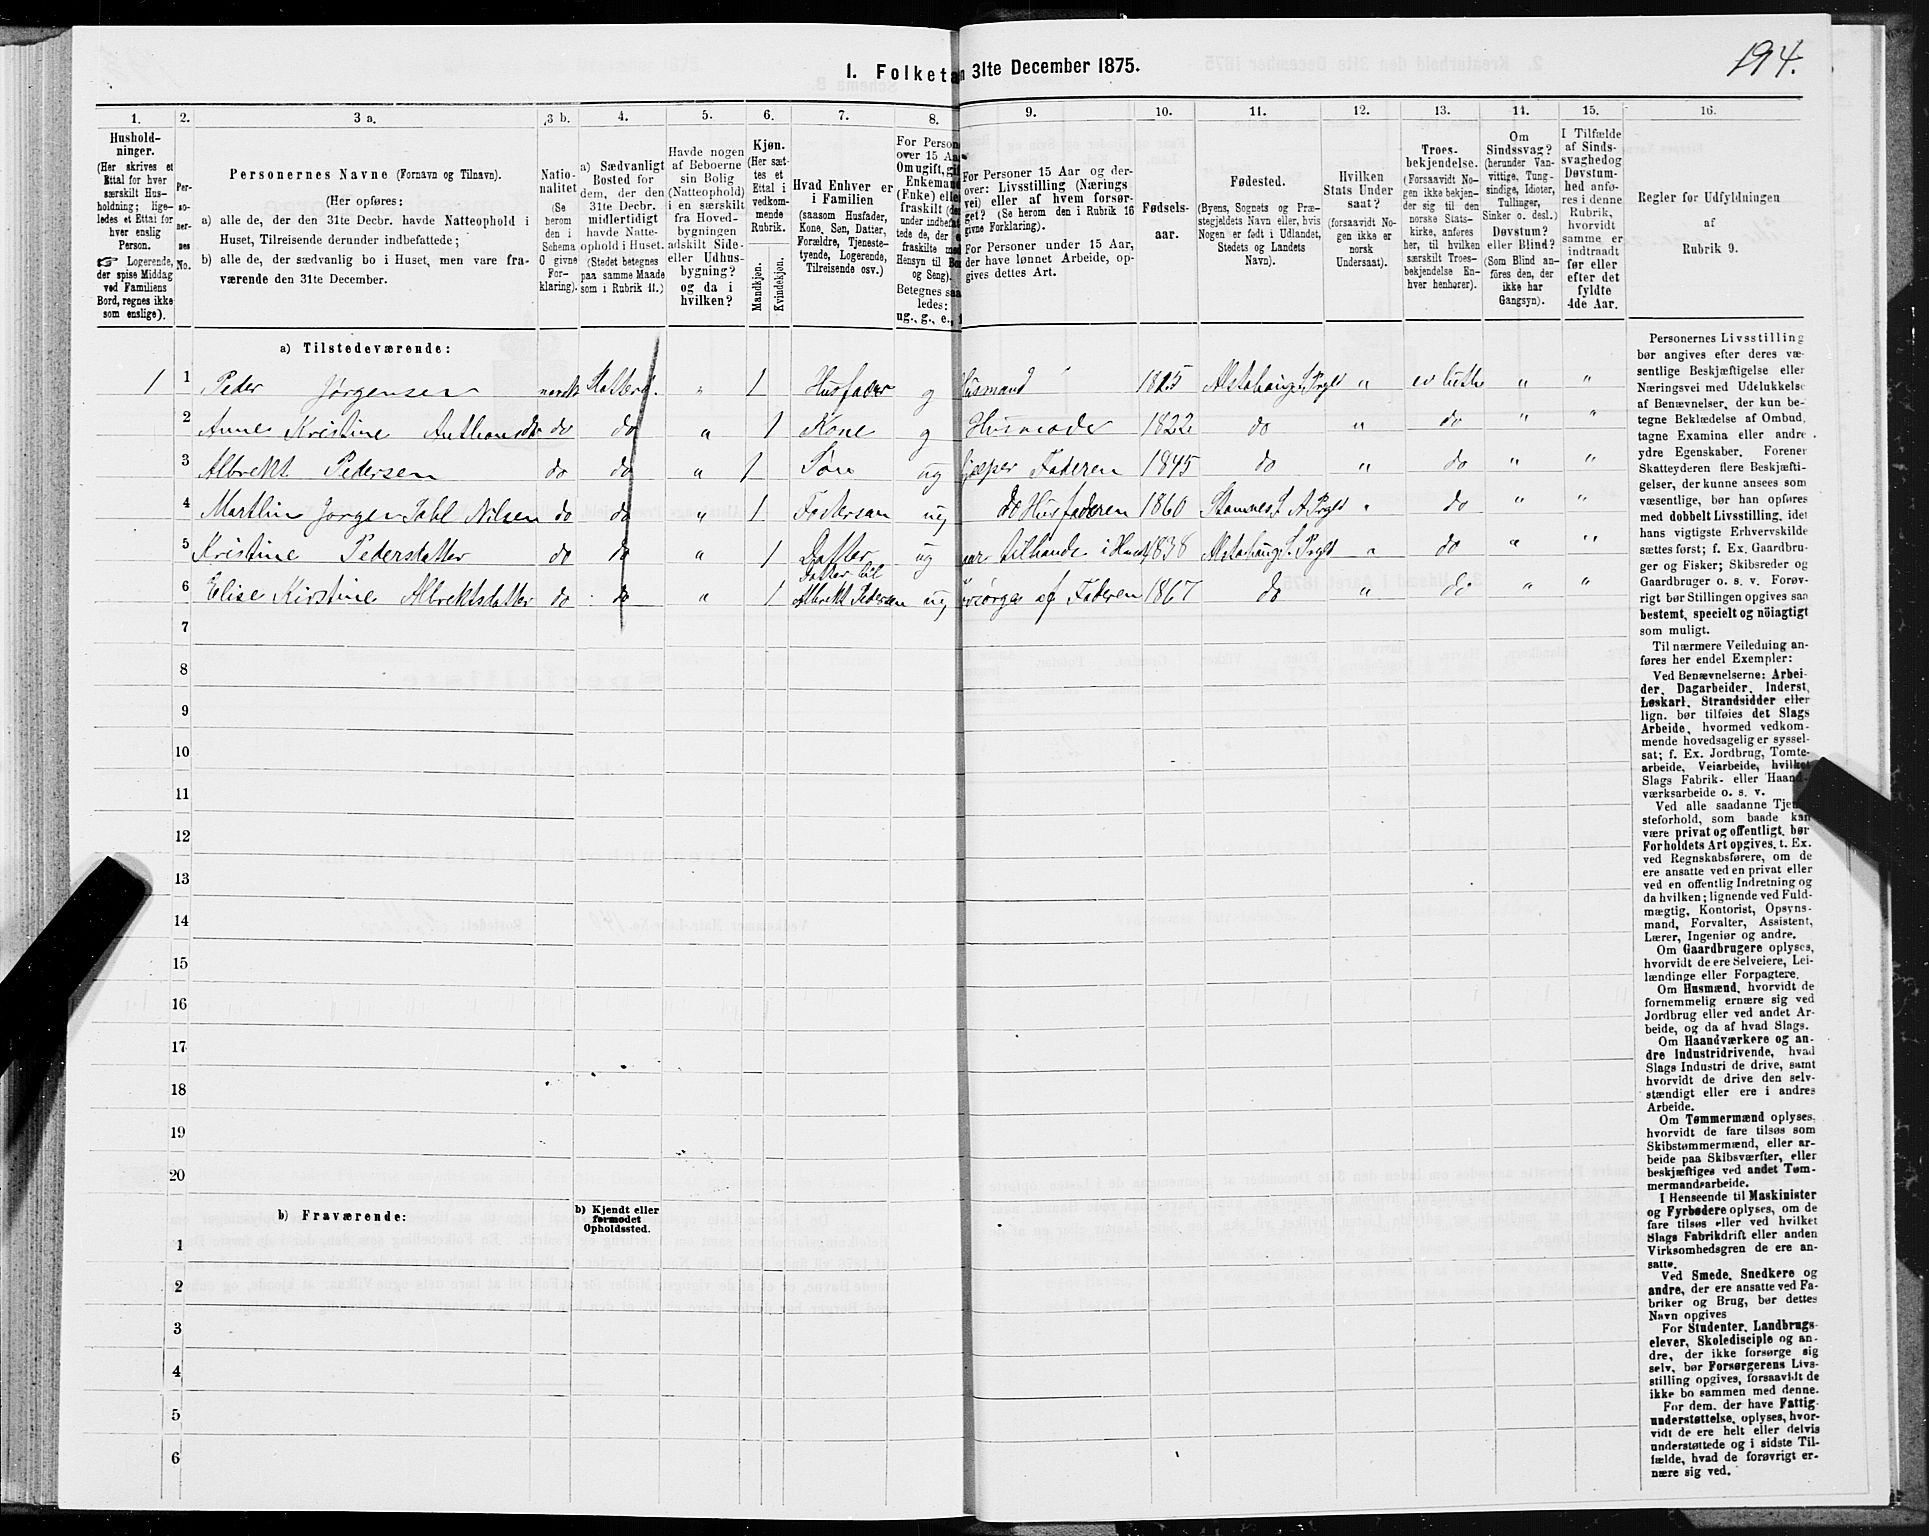 194.
1. Folketæ n 31te December 1875.
1. 2. 3 a. 3 b. 4. 5. 6. 7. 8. 9. 10. 11. 12. 13. 14. 15. 16.
Hushold-
ninger.
(Her skrives et
Ettal for hver
særskilt Hus-
holdning; lige-
ledes et Ettal for
hver enslig
Person.
☞ Logerende,
der spise Middag
ved Familiens
Bord, regnes ikke
som enslige).
Per-
so-
ner-
nes
No.
Personernes Navne (Fornavn og Tilnavn).
(Her opføres:
a) alle de, der den 31te Decbr. havde Natteophold i
Huset, Tilreisende derunder indbefattede;
b) alle de, der sædvanlig bo i Huset, men vare fra-
værende den 31te December.
Natio-
nalitet
(Se
herom
den i
Schema
O givne
For-
klaring).
a) Sædvanligt
Bosted for
dem, der den
31te Decbr.
midlertidigt
havde Natte-
ophold i Huset.
(Stedet betegnes
paa samme Maade
som i Rubrik 11.)
Havde nogen
af Beboerne
sin Bolig
(Natteophold)
i en særskilt
fra Hoved-
bygningen
adskilt Side-
eller Udhus-
bygning?
og da i
hvilken?
Kjøn.
(Her sæt-
tes et
Ettal i
vedkom-
mende
Rubrik.
Mandkjøn.
Kvindekjøn.
Hvad Enhver er
i Familien
(saasom Husfader,
Kone, Søn, Datter,
Forældre, Tjeneste-
tyende, Logerende,
Tilreisende osv.)
For Person
over 15 Aa
Om ugift, gif
Enkemand
(Enke) elle
fraskilt (de
under indbef
tede de, der
fraskilte me
Hensyn til Bo
og Seng).
Betegnes saa
ledes:
ug., g., e.,
For Personer 15 Aar og der-
over: Livsstilling (Nærings
vei) eller af hvem forsør-
get? (Se herom den i Rubrik 16
givne Forklaring).
For Personer under 15 Aar,
der have lønnet Arbeide, op-
gives dettes Art.
Fødsels-
aar.
Fødested.
(Byens, Sognets og Præ-
stegjeldets Navn eller, hvis
Nogen er født i Udlandet,
Stedets og Landets
Navn).
Hvilken
Stats Under
saat?
(forsaavidt No-
gen ikke er
norsk
Undersaat).
Troes-
bekjendelse.
(Forsaavidt No-
gen ikke bekjen-
der sig til den
norske Stats-
kirke, anføres
her, til hvilken
særskilt Troes-
bekjendelse En-
hver henhører).
Om
Sindssvag?
(herunder Van-
vittige, Tung-
sindige, Idioter,
Tullinger,
Sinker o. desl.)
Døvstum?
eller Blind?
(Som Blind an-
føres den, der
ikke har
Gangsyn).
I Tilfælde
af Sinds-
svaghed og
Døvstum-
hed anfø-
res i denne
Rubrik,
hvorvidt
samme er
indtraadt
før eller
efter det
fyldte
4de Aar.
Regler for Udfyldningen
af
Rubrik 9.
a) Tilstedeværende:
1 1 Peder Jørgensen norsk " 1 Husfader g Husmand 1815 Alstahaug S. Prgld " ev luth " "
2 Anne Kristine do do " 1 Kone g 1822 do " do " "
3 Albrekt Pedersen do do " 1 Søn ug Faderen 1845 do " do " "
4 Nilsen do do " 1 ug do Husfaderen 1860 " do " "
5 Kristine Pedersdatter do do " 1 Datter ug 1838 Alstahaug S. Prgld " do " "
6 Elise Kirstine Albrektsdatter do do " 1 Datter til Albrekt Pedersen ug af Faderen 1867 do " do " "
7
8
9
10
11
12
13
14
15
16
17
18
19
20
b) Fraværende: b) Kjendt eller
formodet
Opholdssted.
1
2
3
4
5
6
Personernes Livsstilling
bør angives efter deres væ-
sentlige Beskjæftigelse eller
Næringsvei med Udelukkelse
af Benævnelser, der kun be-
tegne Beklædelse af Ombud,
tagne Examina eller andre
ydre Egenskaber. Forener
Skatteyderen flere Beskjæfti-
gelser, der kunne ansees som
væsentlige, bør han opføres
med dobbelt Livsstilling, idet
hans vigtigste Erhvervskilde
sættes først; f. Ex. Gaardbru-
ger og Fisker; Skibsreder og
Gaardbruger o. s. v. Forøv-
rigt bør Stillingen opgives saa
bestemt, specielt og nöiagtigt
som muligt.
Til nærmere Veiledning an-
føres her endel Exempler:
Ved Benævnelserne: Arbei-
der, Dagarbeider, Inderst,
Løskarl, Strandsidder eller
lign. bør tilføies det Slags
Arbeide, hvormed vedkom-
mende hovedsagelig er syssel-
sat; f. Ex. Jordbrug, Tomte-
arbeide, Veiarbeide, hvilket
Slags Fabrik- eller Haand-
værksarbeide o. s. v.
Ved alle saadanne Tjene-
steforhold, som baade kan
være privat og offentligt, bør
Forholdets Art opgives, t. Ex.
ved Regnskabsførere, om de
ere ansatte ved en privat eller
ved en offentlig Indretning og
da hvilken; lignende ved Fuld-
mægtig, Kontorist, Opsyns-
mand, Forvalter, Assistent,
Lærer, Ingeniør og andre.
Om Gaardbrugere oplyses,
hvorvidt de ere Selveiere, Lei-
lændinge eller Forpagtere.
Om Husmænd, hvorvidt de
fornemmelig ernære sig ved
Jordbrug eller ved andet Ar-
beide, og da af hvad Slags.
Om Haandværkere og an-
dre Industridrivende, hvad
Slags Industri de drive, samt
hvorvidt de drive den selv-
stændigt eller ere i andres
Arbeide.
Om Tømmermænd oplyses,
hvorvidt de fare tilsøs som
Skibstømmermænd, eller ar-
beide paa Skibsværfter, eller
beskjæftiges ved andet Tøm-
mermandsarbeide.
I Henseende til Maskinister
og Fyrbødere oplyses, om de
fare tilsøs eller ved hvilket
Slags Fabrikdrift eller anden
Virksomhedsgren de ere an-
satte.
Ved Smede, Snedkere og
andre, der ere ansatte ved Fa-
briker og Brug, bør dettes
Navn opgives
For Studenter, Landbrugs-
elever, Skoledisciple og an-
dre, der ikke forsørge sig
selv, bør Forsørgerens Livs-
stilling opgives, forsaavidt de
ikke bo sammen med denne.
For dem, der have Fattig-
understøttelse, oplyses, hvor-
vidt de ere helt eller delvis
understøttede og i sidste Til-
fælde, hvad de forøvrigt er-
nære sig ved.